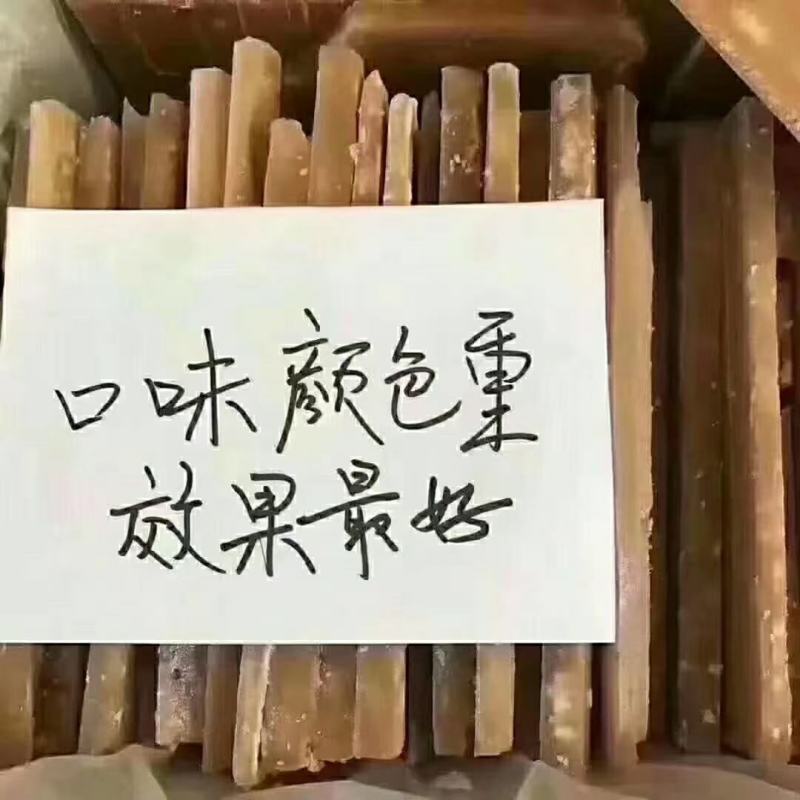 口味颜色重
效果最好